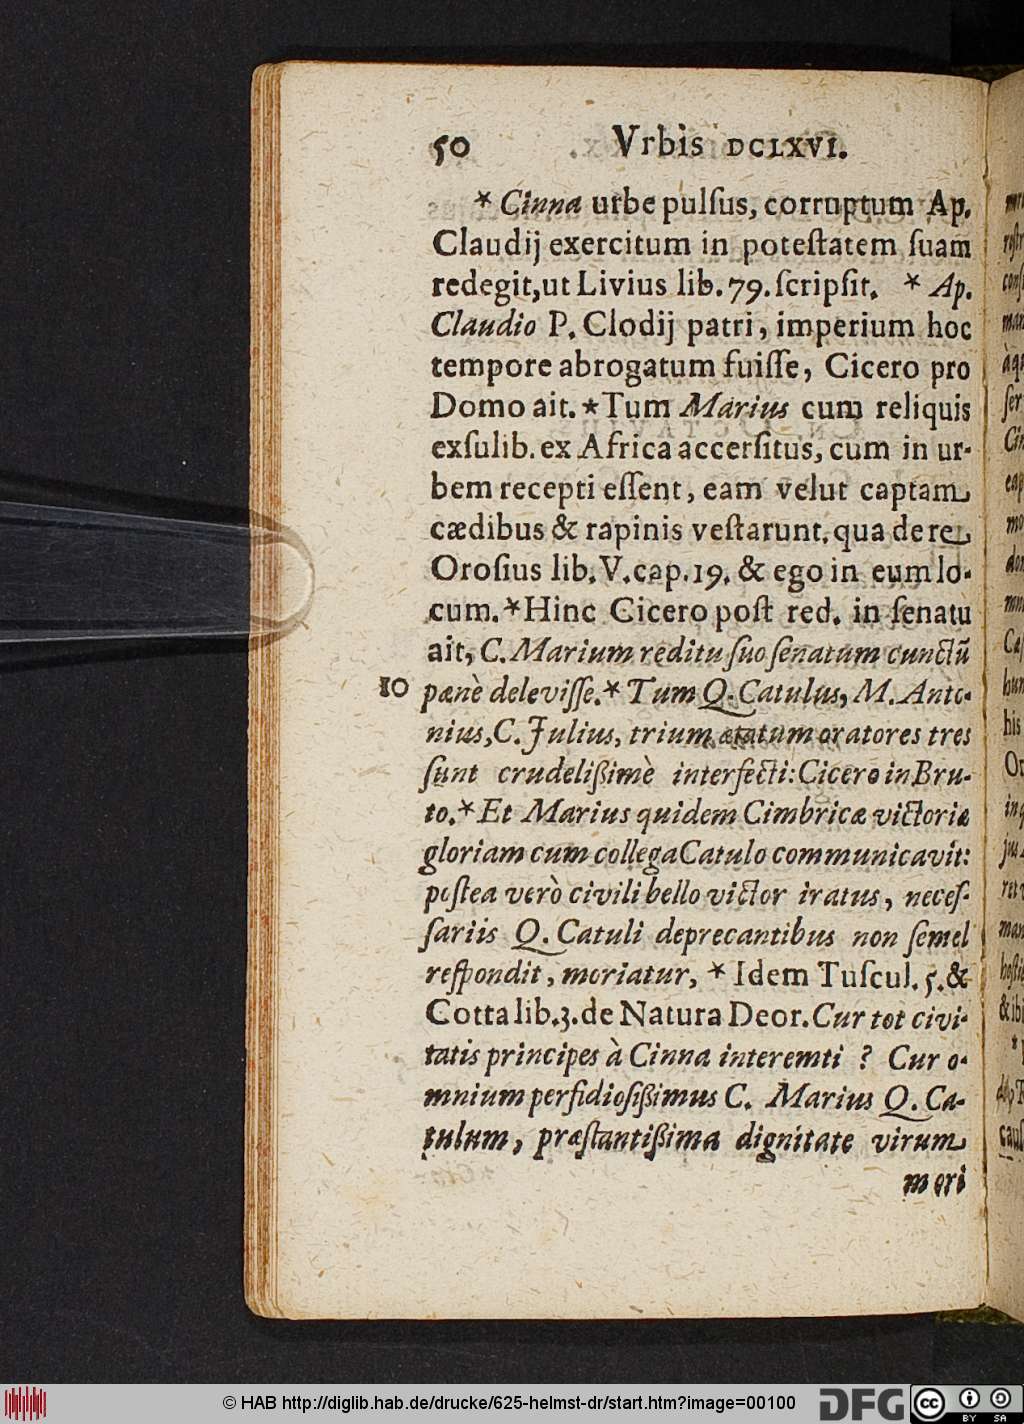 50 Vrbis DCLXVI.
* Cinna urbe pulſus, corruptum Ap.
Claudij exercitum in poteſtatem ſuam
redegit,ut Livius lib. 79. ſcripſit. * Ap.
Claudio P. Clodij patri, imperium hoc
tempore abrogatum fuiſſe, Cicero pro
Domo ait. * Tum Marius cum reliquis
exſulib. ex Africa accerſitus, cum in ur-
bem recepti eſſent, eam velut captam
cædibus & rapinis veſtarunt. qua de re
Oroſius lib. V. cap. 19. & ego in eum lo-
cum. * Hinc Cicero poſt red. in ſenatu
ait, C. Marium reditu ſuo ſenatum cunctū
10 pænè deleviſſe. * Tum Q. Catulus, M. Anto-
nius, C. Julius, trium ætatum oratores tres
ſunt crudelißimè interfecti: Cicero in Bru-
to. * Et Marius quidem Cimbricæ victoriæ
gloriam cum collega Catulo communicavit:
poſtea verò civili bello victor iratus, neceſ-
ſariis Q. Catuli deprecantibus non ſemel
reſpondit, moriatur, * Idem Tuſcul. 5. &
Cotta lib. 3. de Natura Deor. Cur tot civi-
tatis principes à Cinna interemti ? Cur o-
mnium perfidioſißimus C. Marius Q. Ca-
tulum, præſtantißima dignitate virum
mori
© HAB http://diglib.hab.de/drucke/625-helmst-dr/start.htm?image=00100
DFG
cc
BY SA